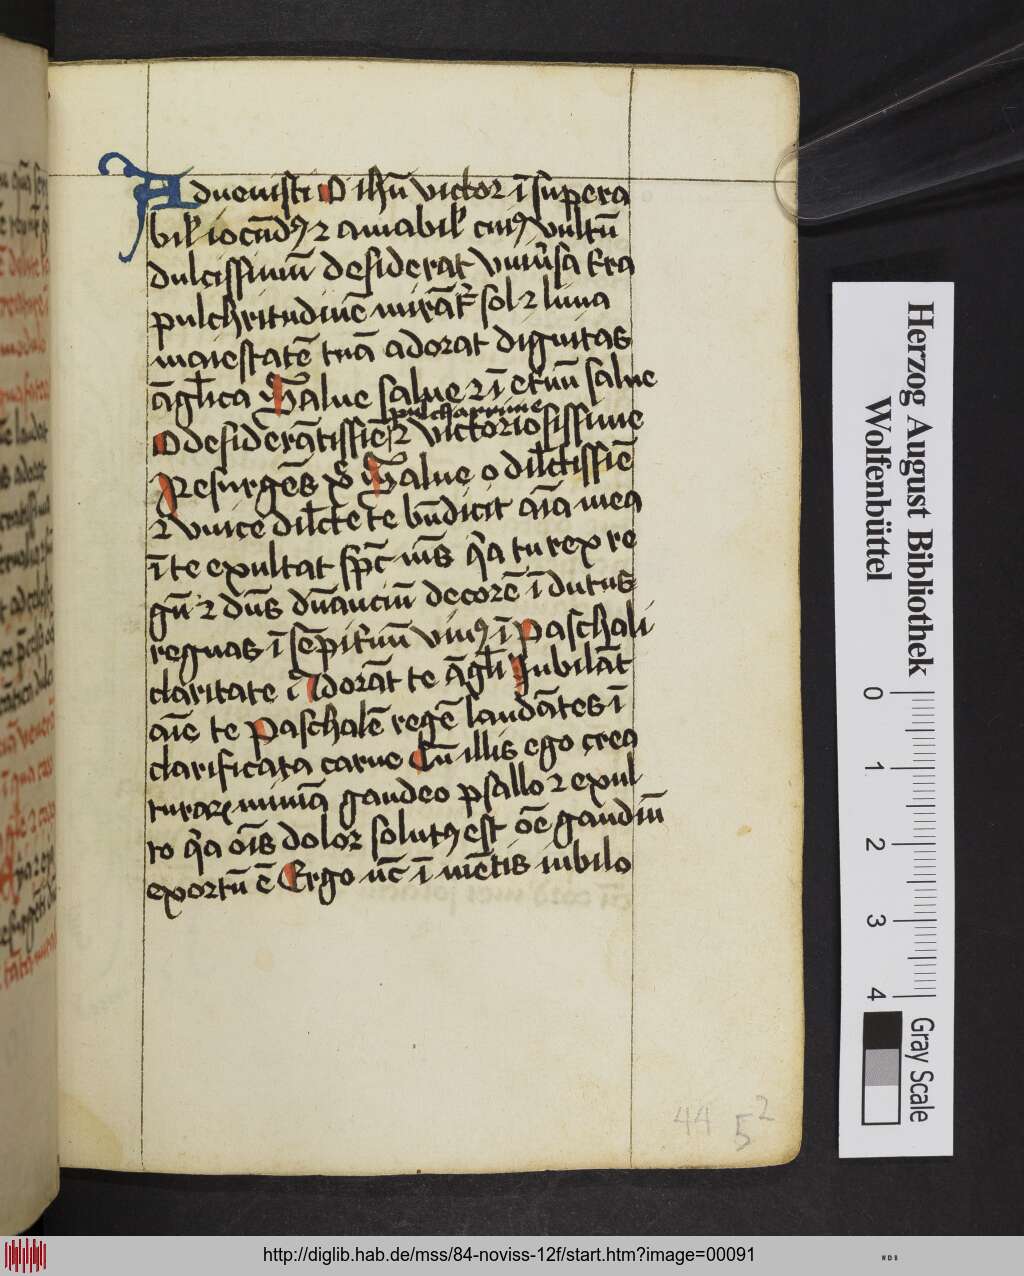 Aduenisti O ihū victor ī supera
bił iocūdꝰ ⁊ amabił cuiꝰ vultū
dulcissimū desiderat vniūsa t̄ra
pulchritudinē mirāt᷑ sol ⁊ luna
maiestatē tuā adorat dignitas
āgł̄ica Salue salue ⁊ ī et̄nū salue
pulcharrime
O desiderātissīe ⁊ victoriosissime
Resurgēs Salue o dił̄ctissīe
⁊ vnice dił̄cte te bn̄dicit aīa mea
ī te exultat sp̄c m̄s q̄a tu rex re
gū ⁊ dn̄s dn̄anciū decorē īdutus
regnas ī sēpit̄nū viuꝰ ī Paschali
claritate Adorāt te āgłi Iubilāt
aīe te Paschalē regē laudātes ī
clarificata carne Cū illis ego crea
turaꝝ mīmā gaudeo psallo ⁊ exul
to q̄a oīs dolor solutꝰ est oē gaudiū
exortū ē Ergo nūc ī mētis iubilo
44 5 2
Herzog August Bibliothek
Wolfenbüttel
0 1 2 3 4
Gray Scale
http://diglib.hab.de/mss/84-noviss-12f/start.htm?image=00091